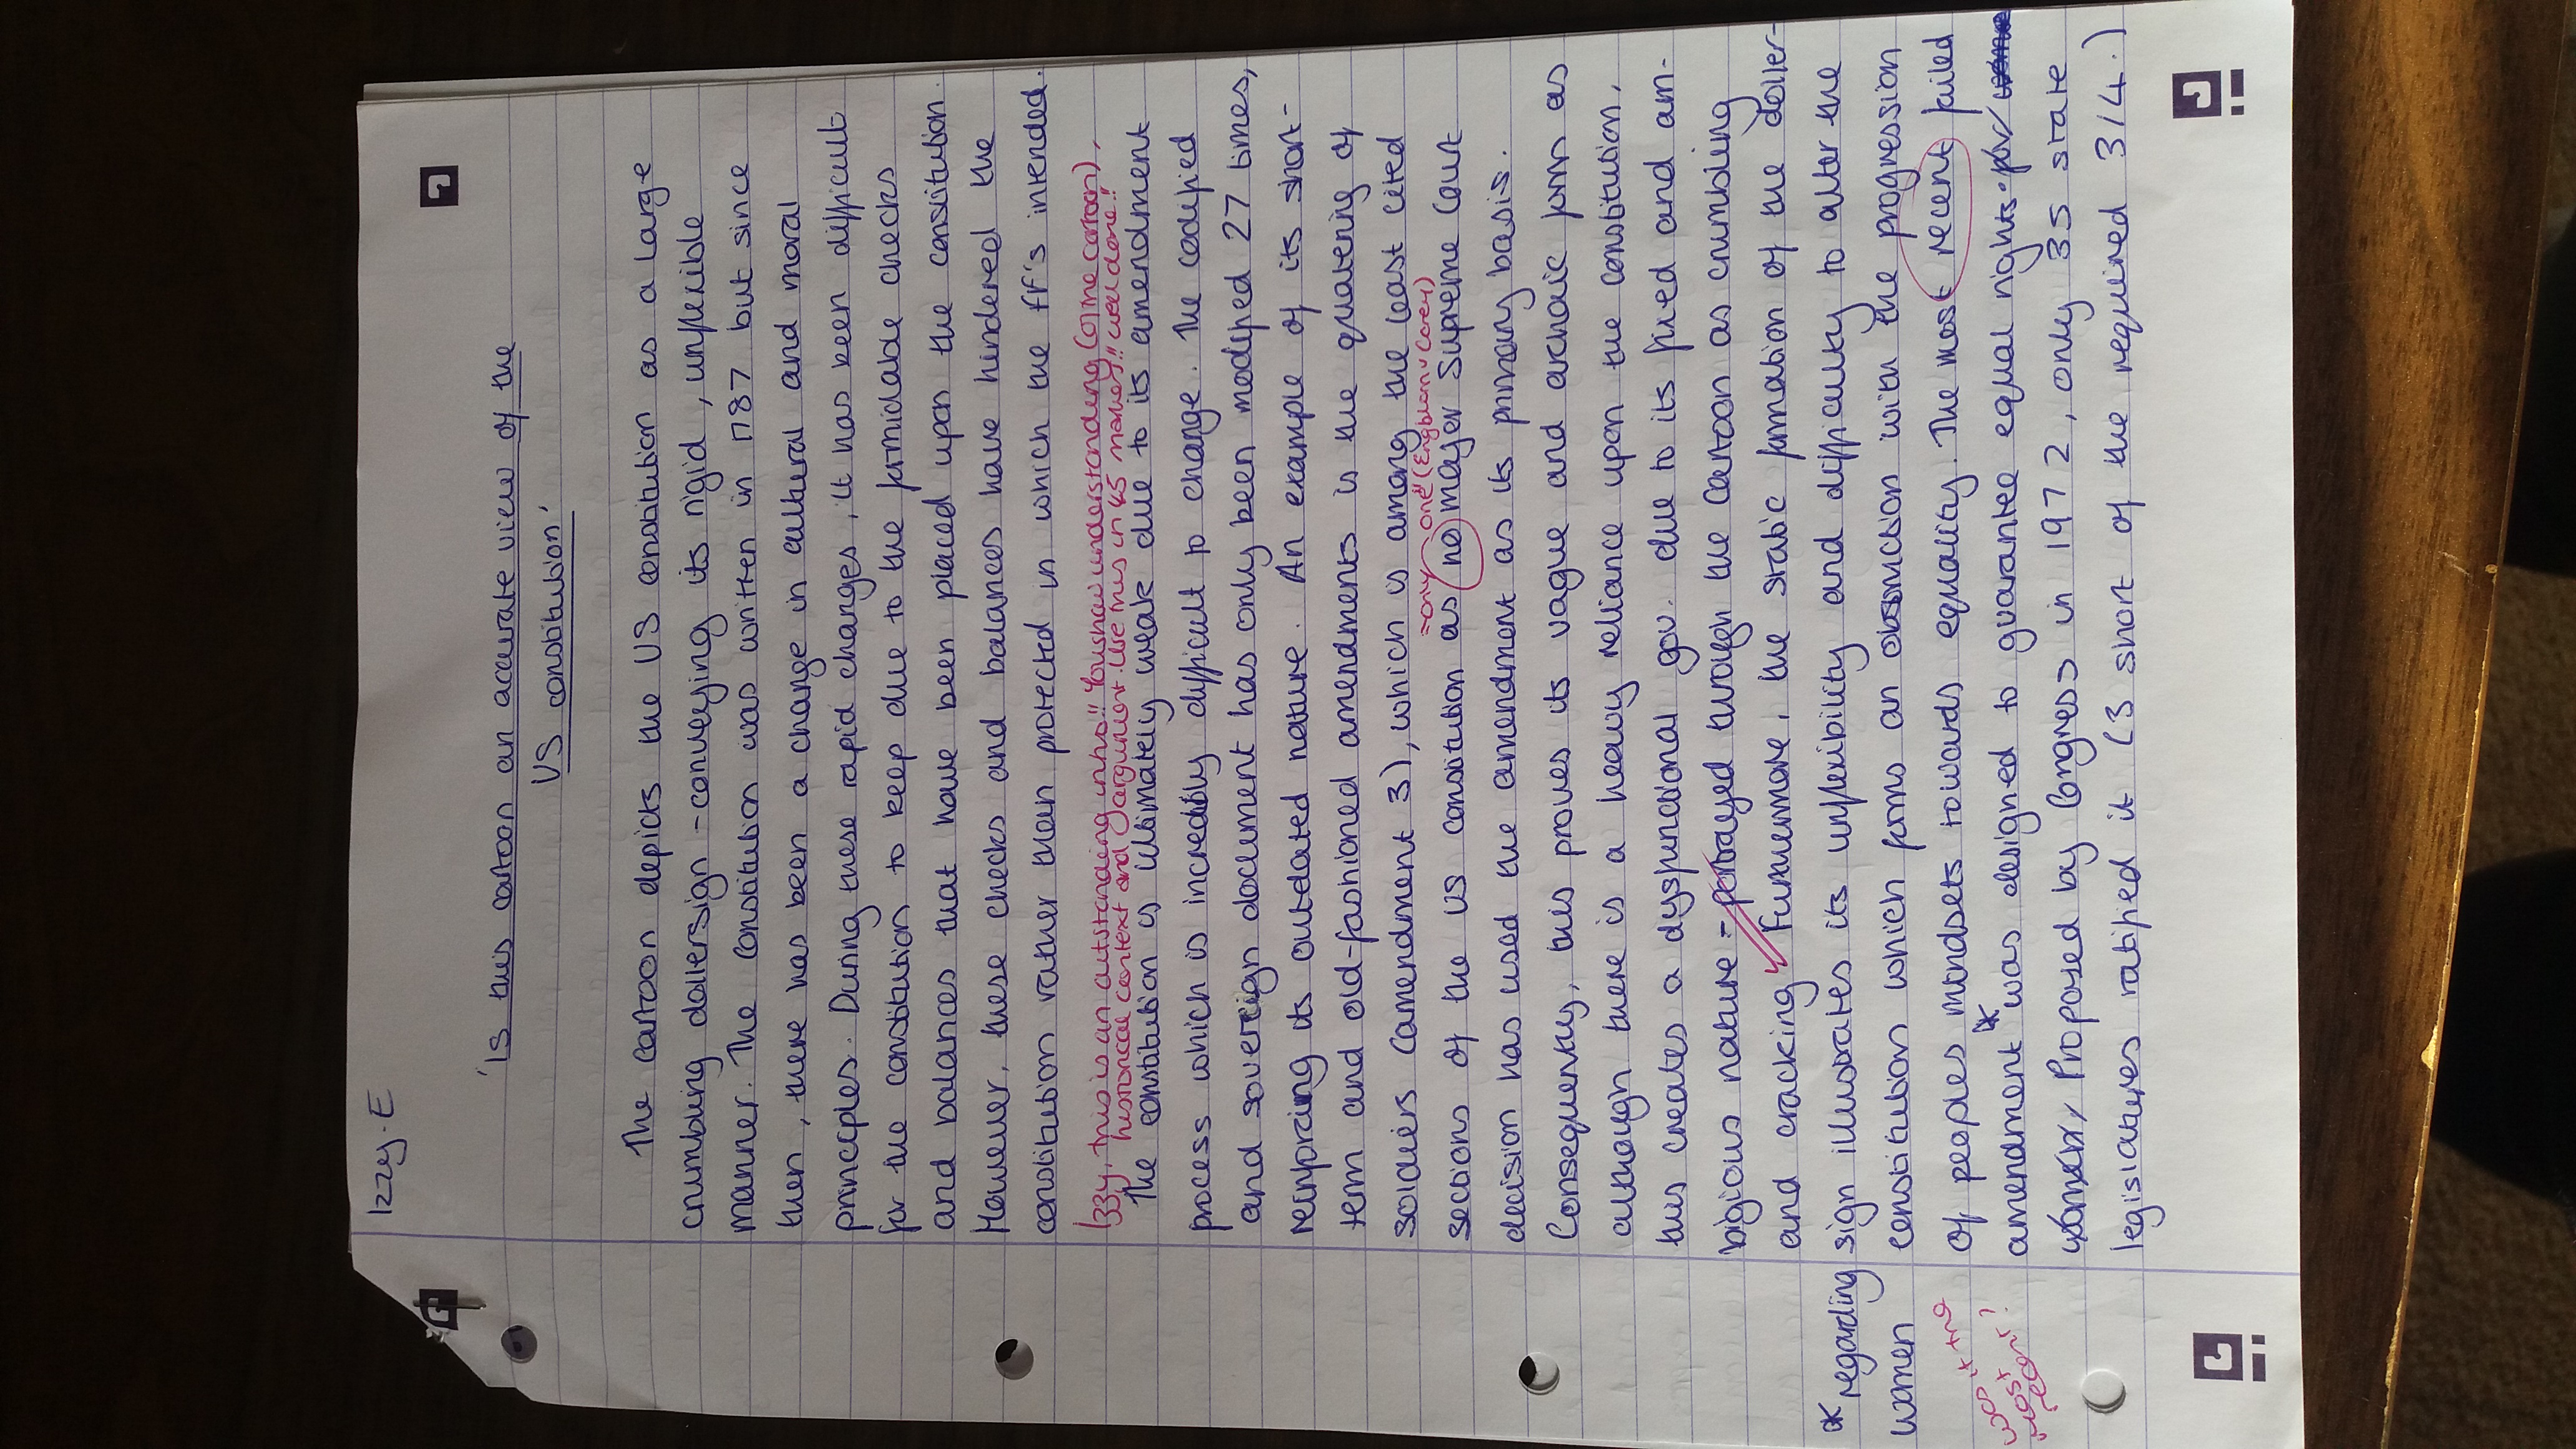 Izzy-E
'Is this cartoon an accurate view of the
US constitution'
The cartoon depicts the US constitution as a large
crumbling dollersign - conveying its rigid, unflexible
manner. The constitution was written in 1787 but since
then, there has been a change in cultural and moral
principles. During these rapid changes, it has been difficult
for the constitution to keep due to the formidable checks
and balances that have been placed upon the consitution.
However, these checks and balances have hindered the
constitution rather than protected in which the FF's intended.
Izzy, this is an outstanding intro!! You show understanding (of the cartoon),
historical context and argument. We this in 45 marker!! well done!!
The constitution is ultimately weak due to its amendment
process which is incredibly difficult to change. The codified
and sovereign document has only been modified 27 times,
reinforcing its outdated nature. An example of its short-
term and old-fashioned amendments is the quatering of
soldiers (amendment 3), which is among the least cited
→only one" (Engblom v Carey)
sections of the US constitution as no major Supreme Court
decision has used the amendment as its primary basis.
Consequently, this proves its vague and archaic form as
although there is a heavy reliance upon the constitution,
this creates a dysfunctional gov. due to its fixed and am-
bigious nature - portrayed through the cartoon as crumbling
and cracking. Furthermore, the static formation of the doller-
sign illustrates its unflexibility and difficulty to alter the
constitution which forms an obstruction with the progression
of peoples mindsets towards equality. The most recent failed
amendment * was designed to guarantee equal rights. for
women. Proposed by Congress in 1972, only 35 state
legislatures ratified it (3 short of the required 3/4.)
* regarding
women
was it the
most
recent?